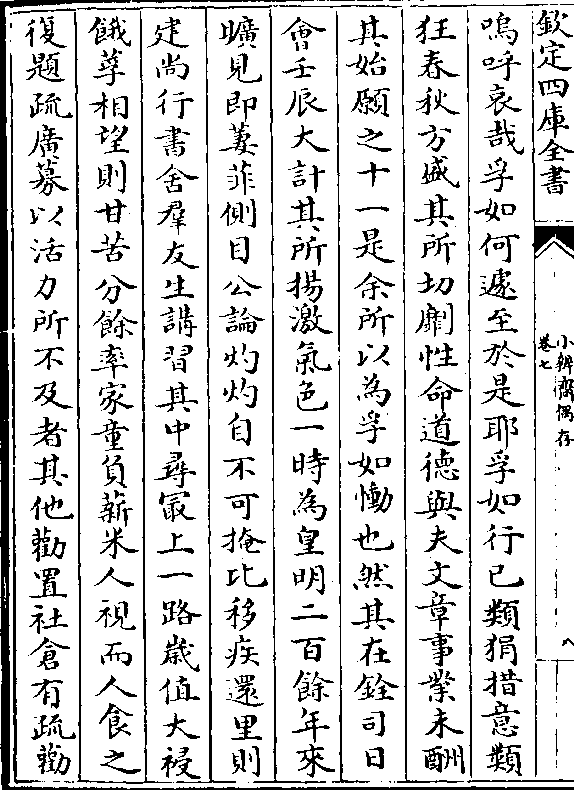 欽定四庫全書
小辨齋偶存
卷七
八
嗚呼哀哉孚如何遽至於是耶孚如行已類狷措意類
狂春秋方盛其所切劘性命道德與夫文章事業未酬
其始願之十一是余所以為孚如慟也然其在銓司日
會壬辰大計其所揚激氣色一時為皇明二百餘年來
曠見即萋菲側目公論灼灼自不可掩比移疾還里則
建尚行書舍羣友生講習其中尋㝡上一路歲值大祲
餓莩相望則甘苦分餘率家童負薪米人視而人食之
復題疏廣募以活力所不及者其他勸置社倉有疏勸